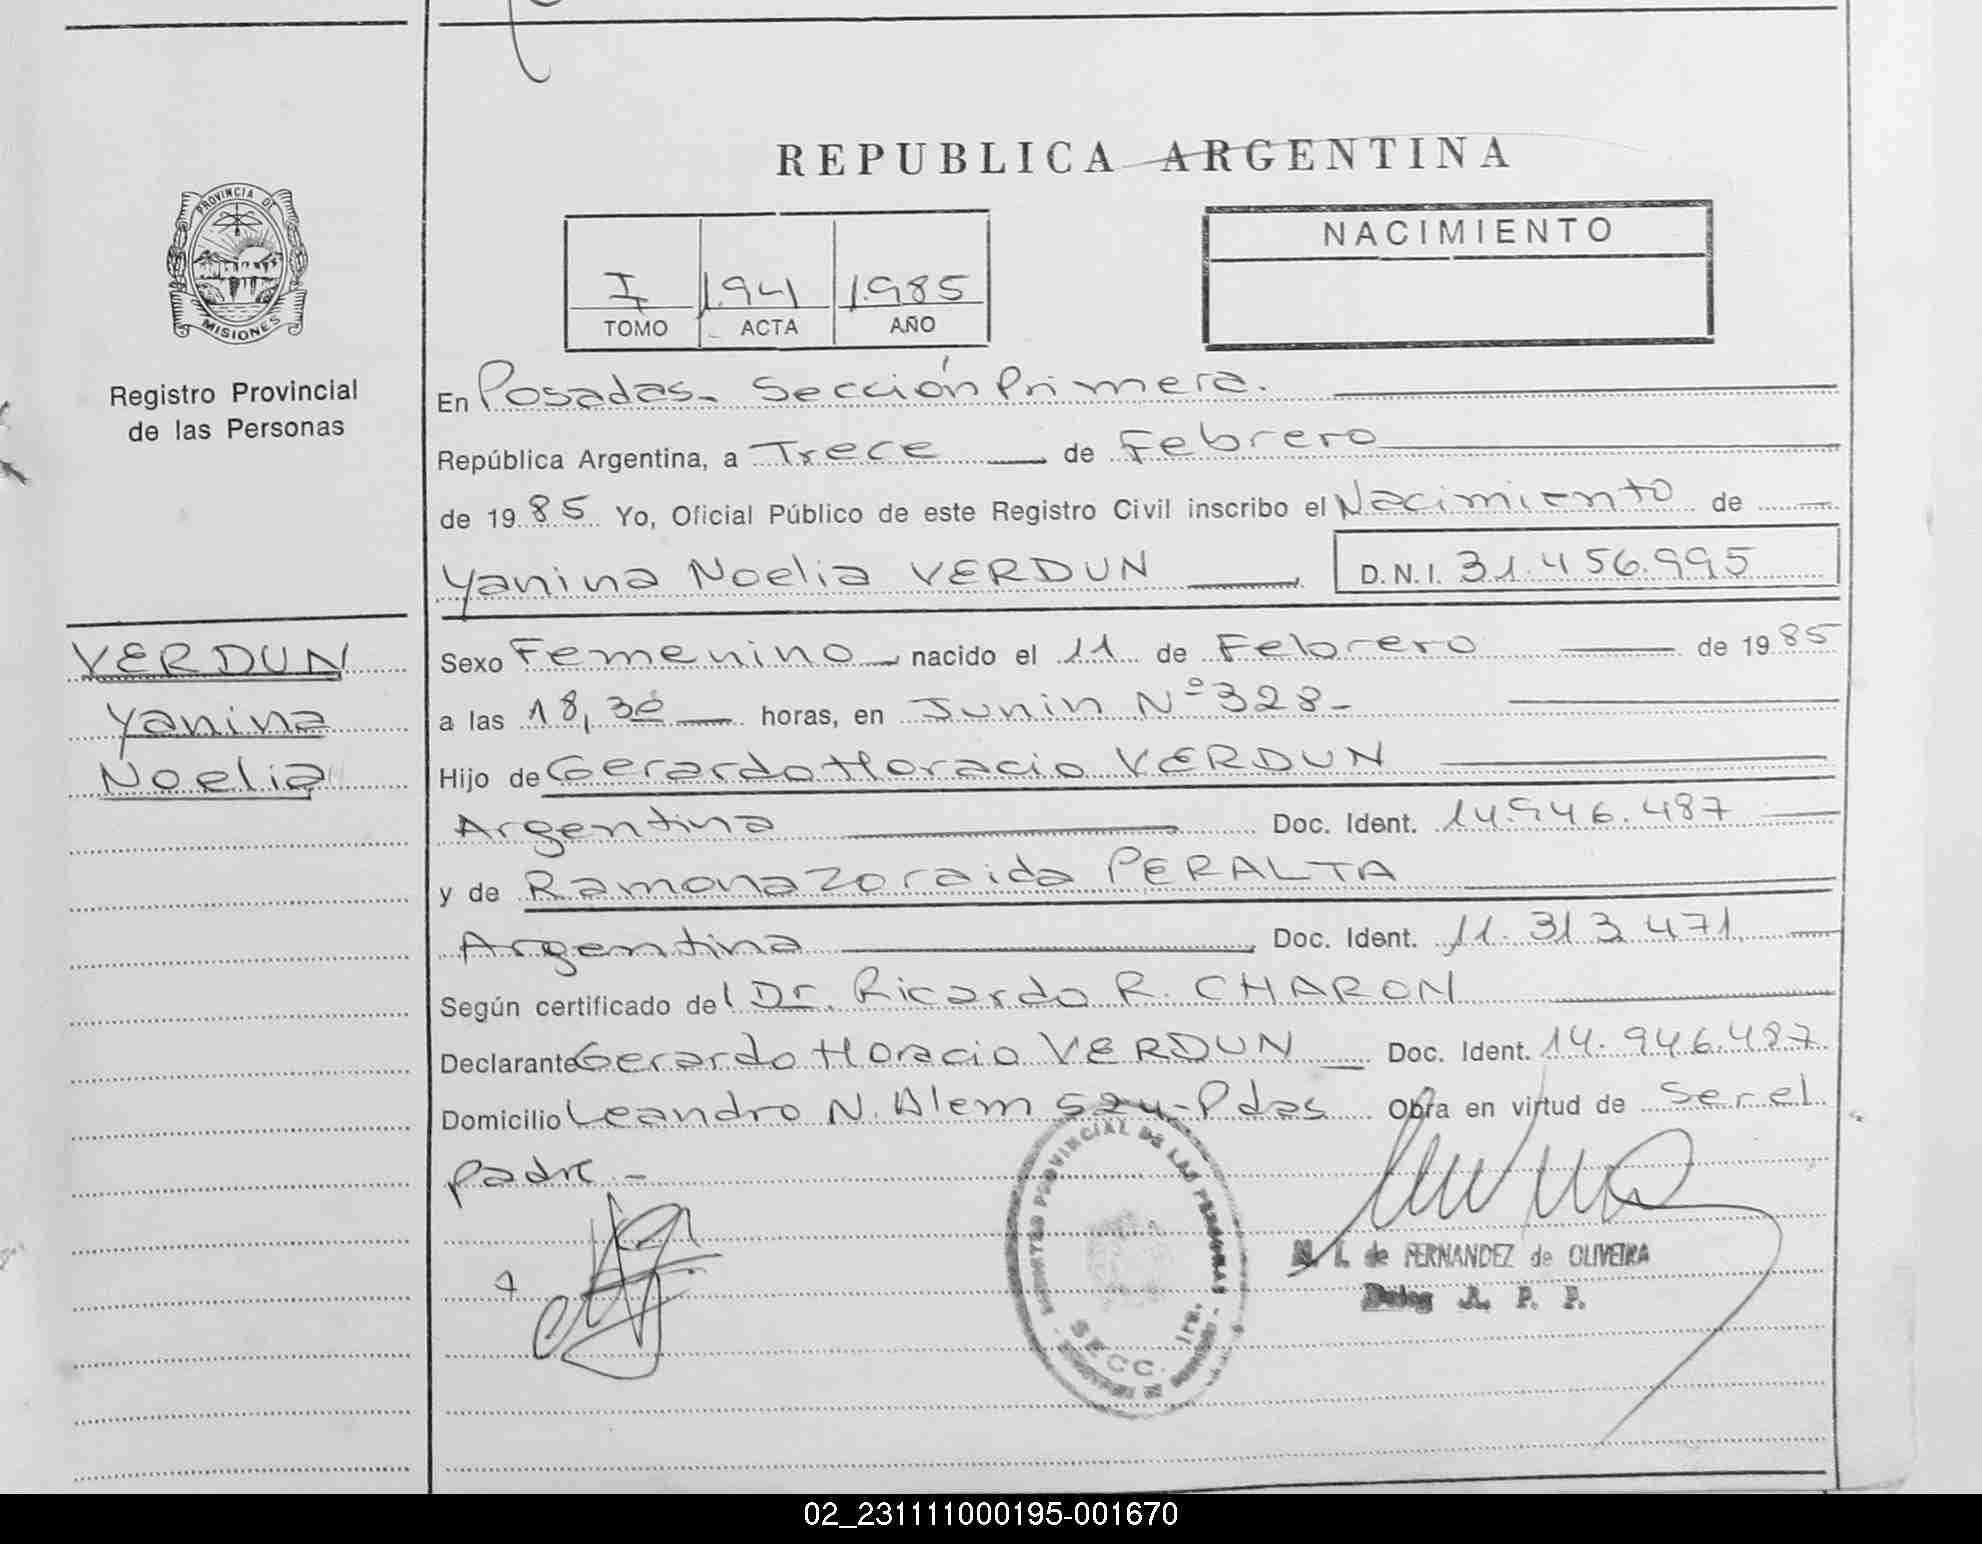 REPUBLICA ARGENTINA
PROVINCIA DE
MISIONES
Registro Provincial
de las Personas
I 194 1985
TOMO ACTA AÑO
NACIMIENTO
En Posadas- Sección Primera.
República Argentina, a Trece de Febrero
de 1985 Yo, Oficial Público de este Registro Civil inscribo el Nacimiento de
Yanina Noelia VERDUN D.N.I. 31.456.995
VERDUN
Yanina
Noelia
Sexo Femenino nacido el 11 de Febrero de 1985
a las 18,30 horas, en Junin Nº 328-
Hijo de Gerardo Horacio VERDUN
Argentina Doc. Ident. 14.946.487
y de Ramona Zoraida PERALTA
Argentina Doc. Ident. 11.313.471
Según certificado del Dr. Ricardo R. CHARON
Declarante Gerardo Horacio VERDUN Doc. Ident. 14.946.487
Domicilio Leandro N. Alem 524-Pdas Obra en virtud de Ser el
padre.-
PROVINCIAL DE LAS PERSONAS
SECC. 1ra.
de FERNANDEZ de OLIVEIRA
02_231111000195-001670